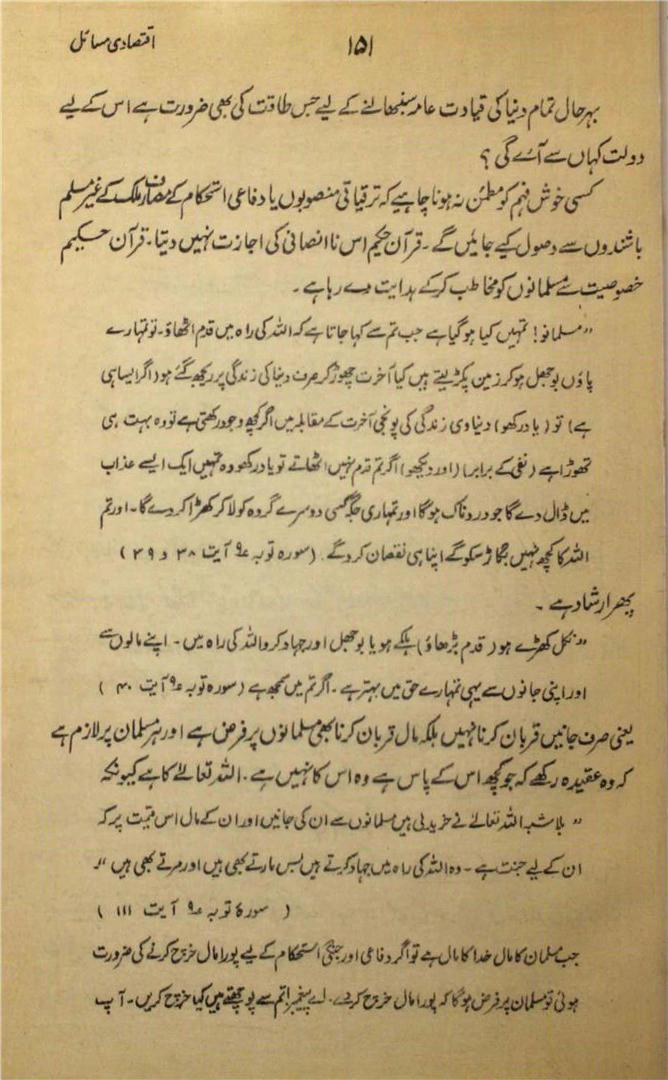 اقتصادی مسائل
۱۵۱
بہر حال تمام دنیا کی قیادت عامہ سنبھالنے کے لیے جس طاقت کی بھی ضرورت ہے اس کے لیے
دولت کہاں سے آئے گی ؟
کسی خوش فہم کو مطمئن نہ ہونا چاہیے کہ ترقیاتی منصوبوں یا دفاعی استحکام کے مصارف ملک کے غیر مسلم
باشندوں سے وصول کیے جائیں گے ۔ قرآن حکیم اس نا انصافی کی اجازت نہیں دیتا ۔ قرآن حکیم
خصوصیت سے مسلمانوں کو مخاطب کرکے ہدایت دے رہا ہے ۔
"مسلمانو! تمہیں کیا ہو گیا ہے جب تم سے کہا جاتا ہے کہ اللہ کی راہ میں قدم اٹھاؤ۔ تو تمہارے
پاؤں بوجھل ہو کر زمین پکڑ لیتے ہیں کیا آخرت چھوڑ کر صرف دنیا کی زندگی پر ریجھ گئے ہو (اگر ایسا ہی
ہے) تو (یاد رکھو) دنیاوی زندگی کی پونجی آخرت کے مقابلہ میں اگر کچھ وجود رکھتی ہے تو وہ بہت ہی
تھوڑا ہے (نفی کے برابر) (اور دیکھو) اگر تم قدم نہیں اٹھاتے تو یاد رکھو وہ تمہیں ایک ایسے عذاب
میں ڈال دے گا جو دردناک ہوگا اور تمہاری جگہ کسی دوسرے گروہ کو لا کر کھڑا کر دے گا۔ اور تم
اللہ کا کچھ نہیں بگاڑ سکو گے اپنا ہی نقصان کرو گے۔ (سورہ توبہ ع۹ آیت ۳۸ و ۳۹)
پھر ارشاد ہے ۔
"نکل کھڑے ہو (قدم بڑھاؤ) ہلکے ہو یا بوجھل اور جہاد کرو اللہ کی راہ میں ۔ اپنے مالوں سے
اور اپنی جانوں سے یہی تمہارے حق میں بہتر ہے ۔ اگر تم میں سمجھ ہے (سورہ توبہ ع۹ آیت ۴۰)
یعنی صرف جانیں قربان کرنا نہیں بلکہ مال قربان کرنا بھی مسلمانوں پر فرض ہے اور ہر مسلمان پر لازم ہے
کہ وہ عقیدہ رکھے کہ جو کچھ اس کے پاس ہے وہ اس کا نہیں ہے ۔ اللہ تعالےٰ کا ہے کیونکہ
"بلاشبہ اللہ تعالےٰ نے خرید لی ہیں مسلمانوں سے ان کی جانیں اور ان کے مال اس قیمت پر کہ
ان کے لیے جنت ہے ۔ وہ اللہ کی راہ میں جہاد کرتے ہیں بس مارتے بھی ہیں اور مرتے بھی ہیں"
(سورۃ توبہ ع۹ آیت ۱۱۱)
جب مسلمان کا مال خدا کا مال ہے تو اگر دفاعی اور جنگی استحکام کے لیے پورا مال خرچ کرنے کی ضرورت
ہوئی تو مسلمان پر فرض ہوگا کہ پورا مال خرچ کردے۔ اے پیغمبر! تم سے پوچھتے ہیں کیا خرچ کریں۔ آپ